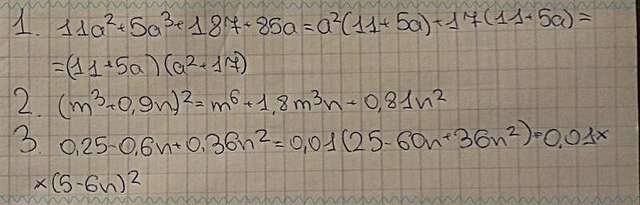 1. 11a²+5a³+187+85a=a²(11+5a)+17(11+5a)=
=(11+5a)(a²+17)
2. (m³+0,9n)²=m⁶+1,8m³n+0,81n²
3. 0,25-0,6n+0,36n²=0,01(25-60n+36n²)=0,01×
×(5-6n)²